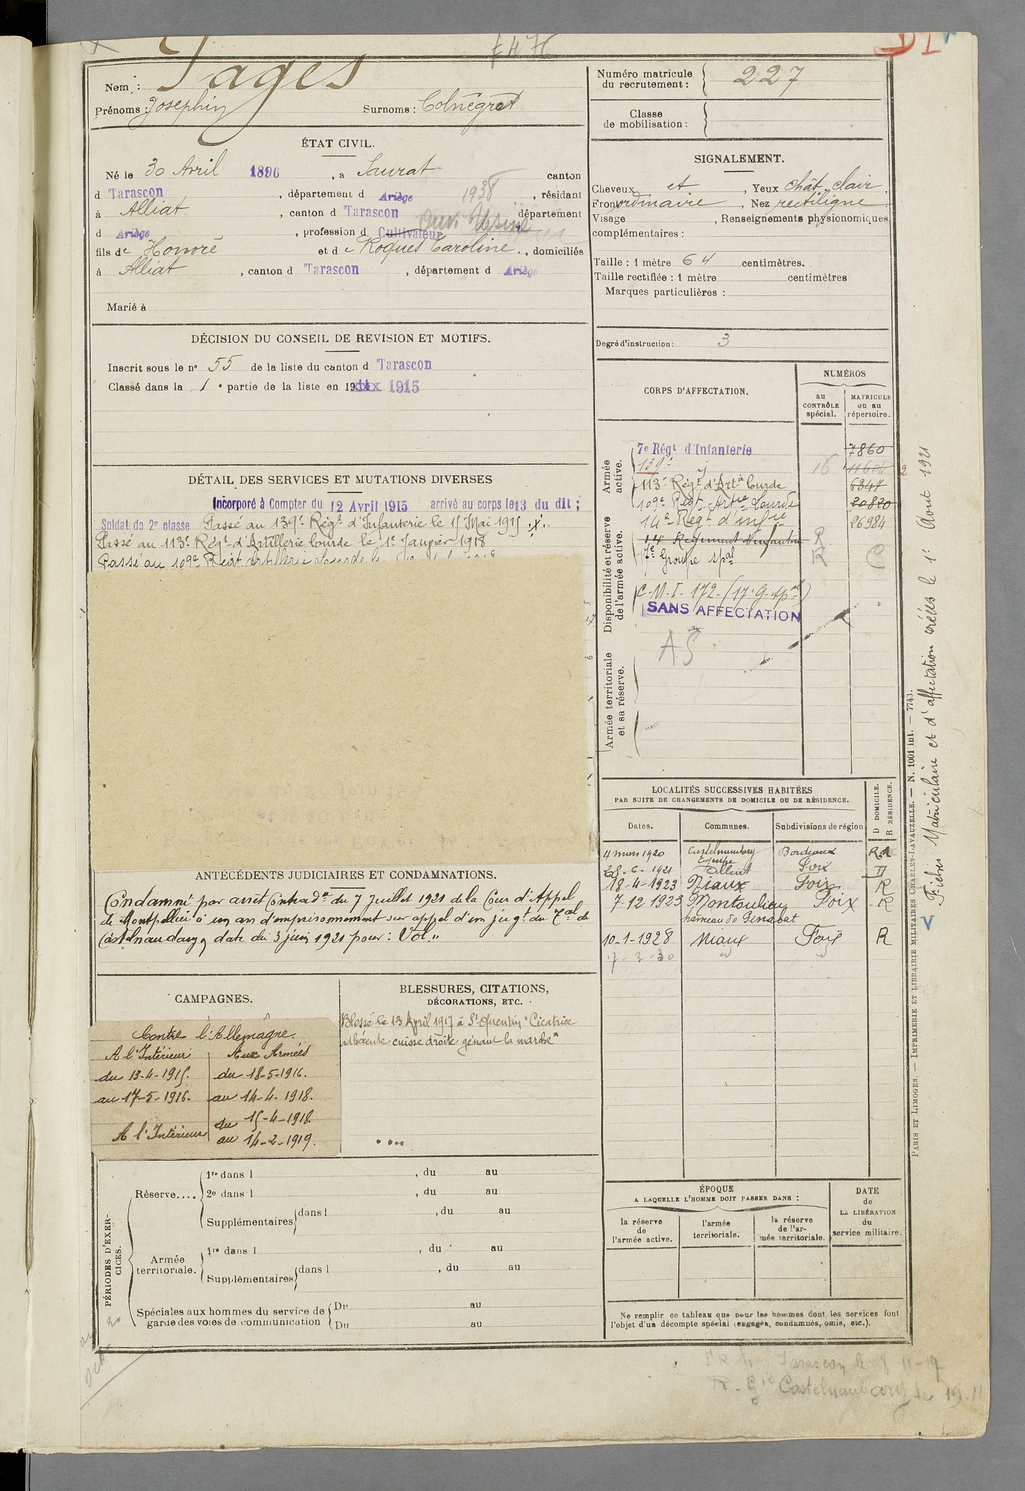 Nom : Pagès
Prénoms : Josephin Surnoms :
Numéro matricule du recrutement : 227
Classe de mobilisation :
ÉTAT CIVIL.
Né le 30 Avril 1896, à Saurat canton
d Tarascon, département d Ariège 1938, résidant
à Alliat, canton d Tarascon département
d Ariège, profession d Cultivateur
fils de Honoré et de Roques Caroline, domiciliés
à Alliat, canton d Tarascon, département d Ariège
Marié à
SIGNALEMENT.
Cheveux et, Yeux chât. clair.
Front ordinaire, Nez rectiligne
Visage, Renseignements physionomiques
complémentaires :
Taille : 1 mètre 64 centimètres.
Taille rectifiée : 1 mètre centimètres
Marques particulières :
Degré d'instruction : 3
DÉCISION DU CONSEIL DE REVISION ET MOTIFS.
Inscrit sous le n° 55 de la liste du canton d Tarascon
Classé dans la 1e partie de la liste en 19 1915
DÉTAIL DES SERVICES ET MUTATIONS DIVERSES
Incorporé à Compter du 12 Avril 1915 arrivé au corps le 13 du dit ;
Soldat de 2e classe Passé au 139e Régt d'Infanterie le 15 Mai 1915
Passé au 113e Régt d'Artillerie Lourde le 1er Janvier 1918
Passé au 109e Régt
CORPS D'AFFECTATION.
NUMÉROS
au CONTRÔLE spécial.
MATRICULE ou au répertoire.
Armée active.
7e Régt d'Infanterie 7860
139e 16
113e Régt d'Artie Lourde
109e Régt Artie Lourde 20820
Disponibilité et réserve de l'armée active.
14e Régt d'infie 26984
14 Régiment d'infanterie R
17e Groupe spal R C
C.M.I. 172. (17e G. spal)
SANS AFFECTATION
Armée territoriale et sa réserve.
AS
LOCALITÉS SUCCESSIVES HABITÉES
PAR SUITE DE CHANGEMENTS DE DOMICILE OU DE RÉSIDENCE.
Dates. Communes. Subdivisions de région
D DOMICILE.
R RÉSIDENCE.
4 mars 1920 Castelnaudary Bordeaux R
28-6-1921 Alliat Foix D
18-4-1923 Niaux Foix R
7-12-1923 Montoulieu Foix R
hameau de Ginabat
10-1-1928 Niaux Foix R
7-2-30
ANTÉCÉDENTS JUDICIAIRES ET CONDAMNATIONS.
Condamné par arrêt Contradre du 7 Juillet 1921 de la Cour d'Appel
de Montpellier à un an d'emprisonnement sur appel d'un jugt du Tal de
Castelnaudary date du 3 juin 1921 pour : Vol.,
CAMPAGNES.
Contre l'Allemagne.
A l'Intérieur Aux Armées
du 13-4-1915. du 18-5-1916.
au 17-5-1916. au 14-4-1918.
A l'Intérieur du 15-4-1918.
au 14-2-1919.
BLESSURES, CITATIONS,
DÉCORATIONS, ETC.
Blessé le 13 April 1917 à St Quentin "Cicatrice
adhérente cuisse droite gênant la marche"
PÉRIODES D'EXERCICES.
Réserve....
1re dans l , du au
2e dans l , du au
Supplémentaires dans l , du au
Armée territoriale.
1re dans l , du au
Supplémentaires dans l , du au
Spéciales aux hommes du service de garde des voies de communication
Du au
Du au
ÉPOQUE
A LAQUELLE L'HOMME DOIT PASSER DANS :
la réserve de l'armée active.
l'armée territoriale.
la réserve de l'armée territoriale.
DATE DE LA LIBÉRATION du service militaire.
Ne remplir ce tableau que pour les hommes dont les services font
l'objet d'un décompte spécial (engagés, condamnés, omis, etc.).
PARIS ET LIMOGES. — IMPRIMERIE ET LIBRAIRIE MILITAIRES CHARLES-LAVAUZELLE. — N. 1001 int. — 7743.
Fiches Matriculaire et d'affectation créées le 1er Aout 1921
Tarascon le 8 11-19
R. Gie Castelnaudary le 19-11